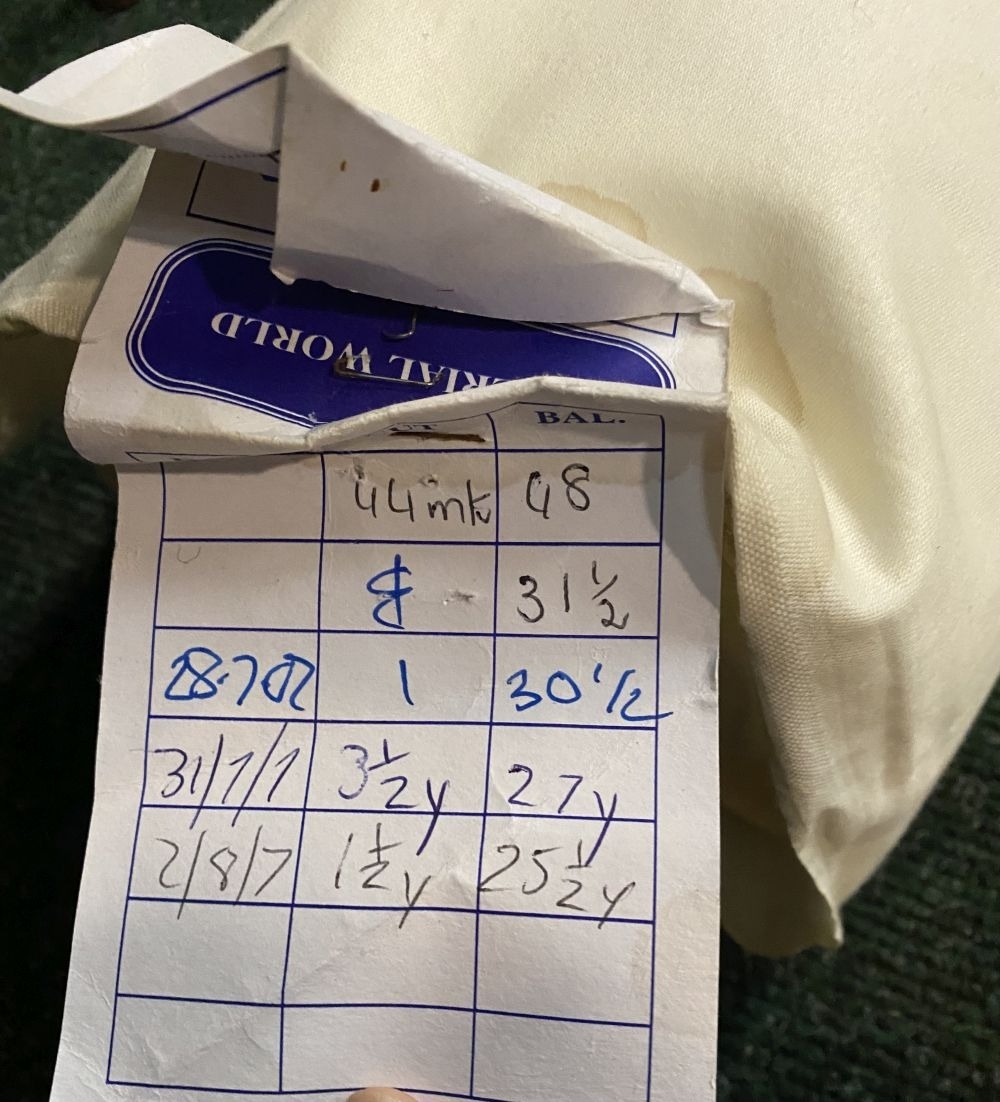 RIAL WORLD
UT BAL.
44 mts 48
31 1/2
28.7.07 1 30 1/2
31/7/7 3 1/2 y 27 y
2/8/7 1 1/2 y 25 1/2 y